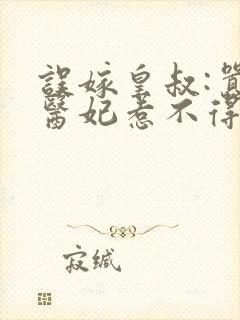 誤嫁皇叔:
醫妃惹不得
寂缄